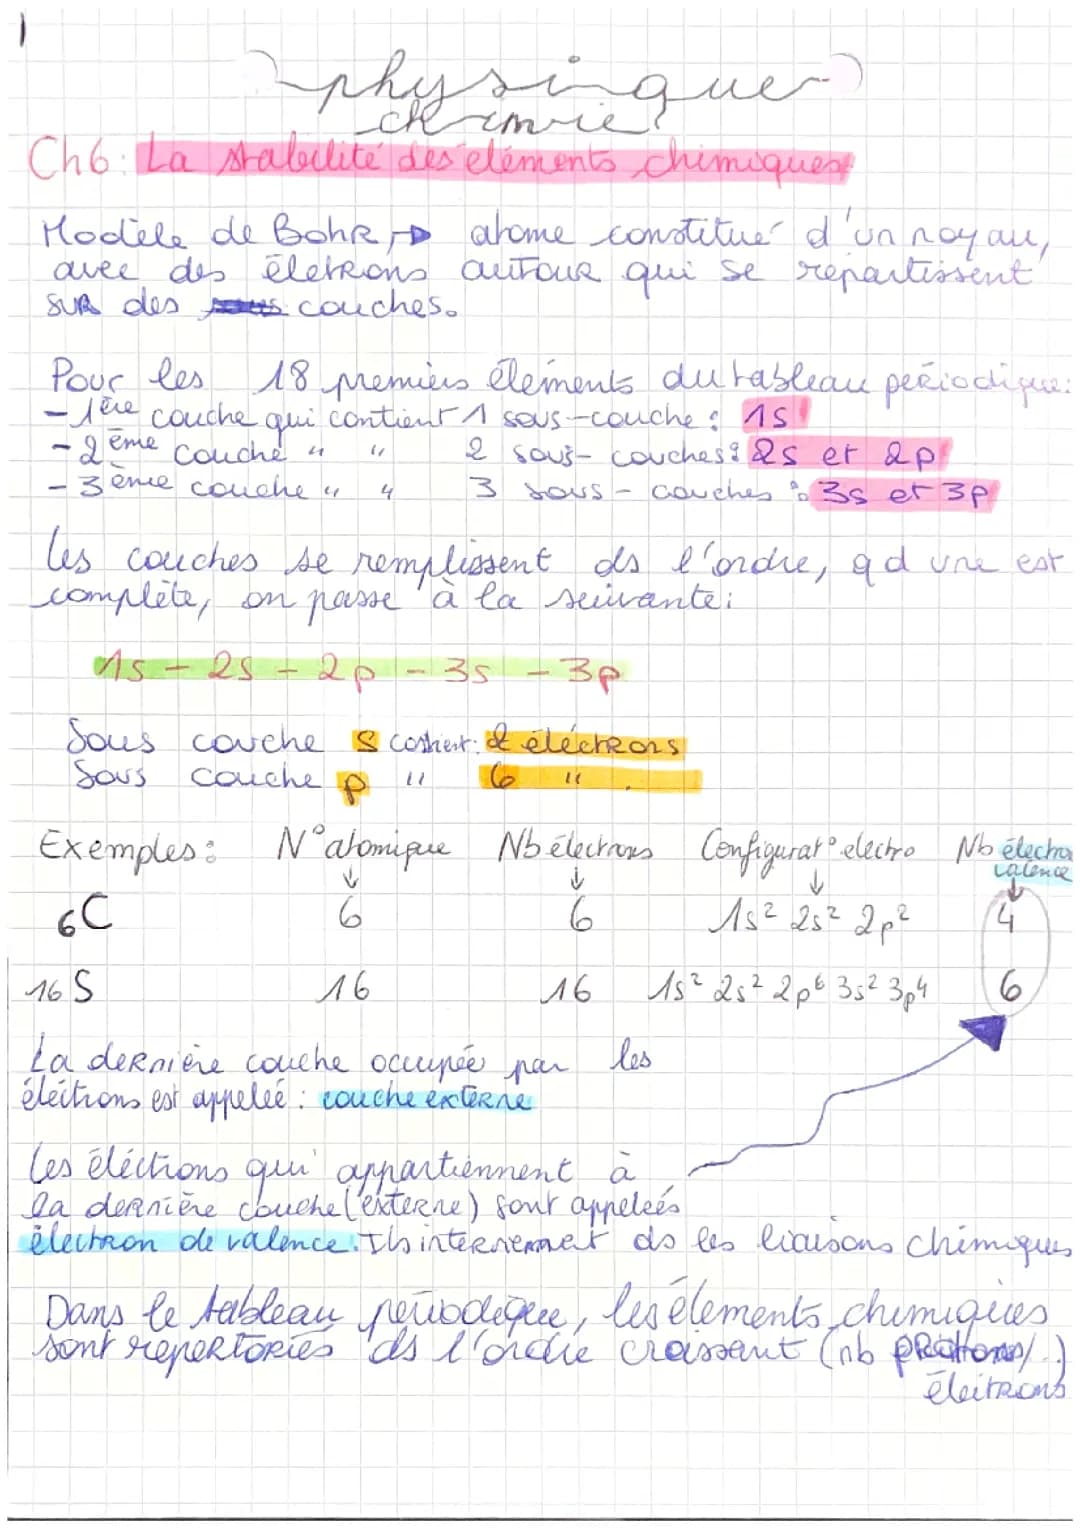 1
physique
chimie
Ch6: La stabilité des éléments chimiques
Modèle de Bohr → atome constitué d'un noyau,
avec des életrons autour qui se répartissent
sur des couches.
Pour les 18 premiers éléments du tableau périodique:
- 1ère couche qui contient 1 sous-couche : 1s
- 2ème couche " " 2 sous-couches : 2s et 2p
- 3ème couche " " 3 sous-couches : 3s et 3p
les couches se remplissent ds l'ordre, qd une est
complète, on passe à la suivante:
1s - 2s - 2p - 3s - 3p
Sous couche s contient: 2 éléctrons
Sous couche p " 6 " .
Exemples: N° atomique Nb électrons Configurat° electro Nb électro
valence
↓ ↓ ↓ ↓
6C 6 6 1s² 2s² 2p² 4
16S 16 16 1s² 2s² 2p⁶ 3s² 3p⁴ 6
La dernière couche occupée par les
éléctrons est appelée : couche externe
Les éléctrons qui appartiennent à
la dernière couche (externe) sont appeleés
électron de valence. Ils interviennent ds les liaisons chimiques
Dans le tableau périodique, les élements chimiques
sont repertoriés ds l'ordre croissant (nb protons/..)
éléctrons